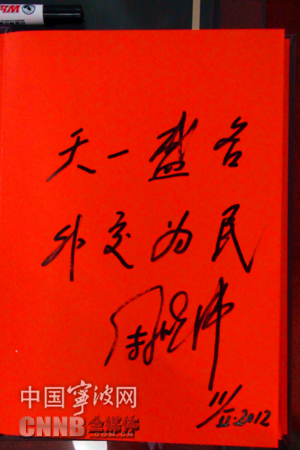 天一盛名
外交为民
11/Ⅱ·2012
中国宁波网
CNNB 全媒体